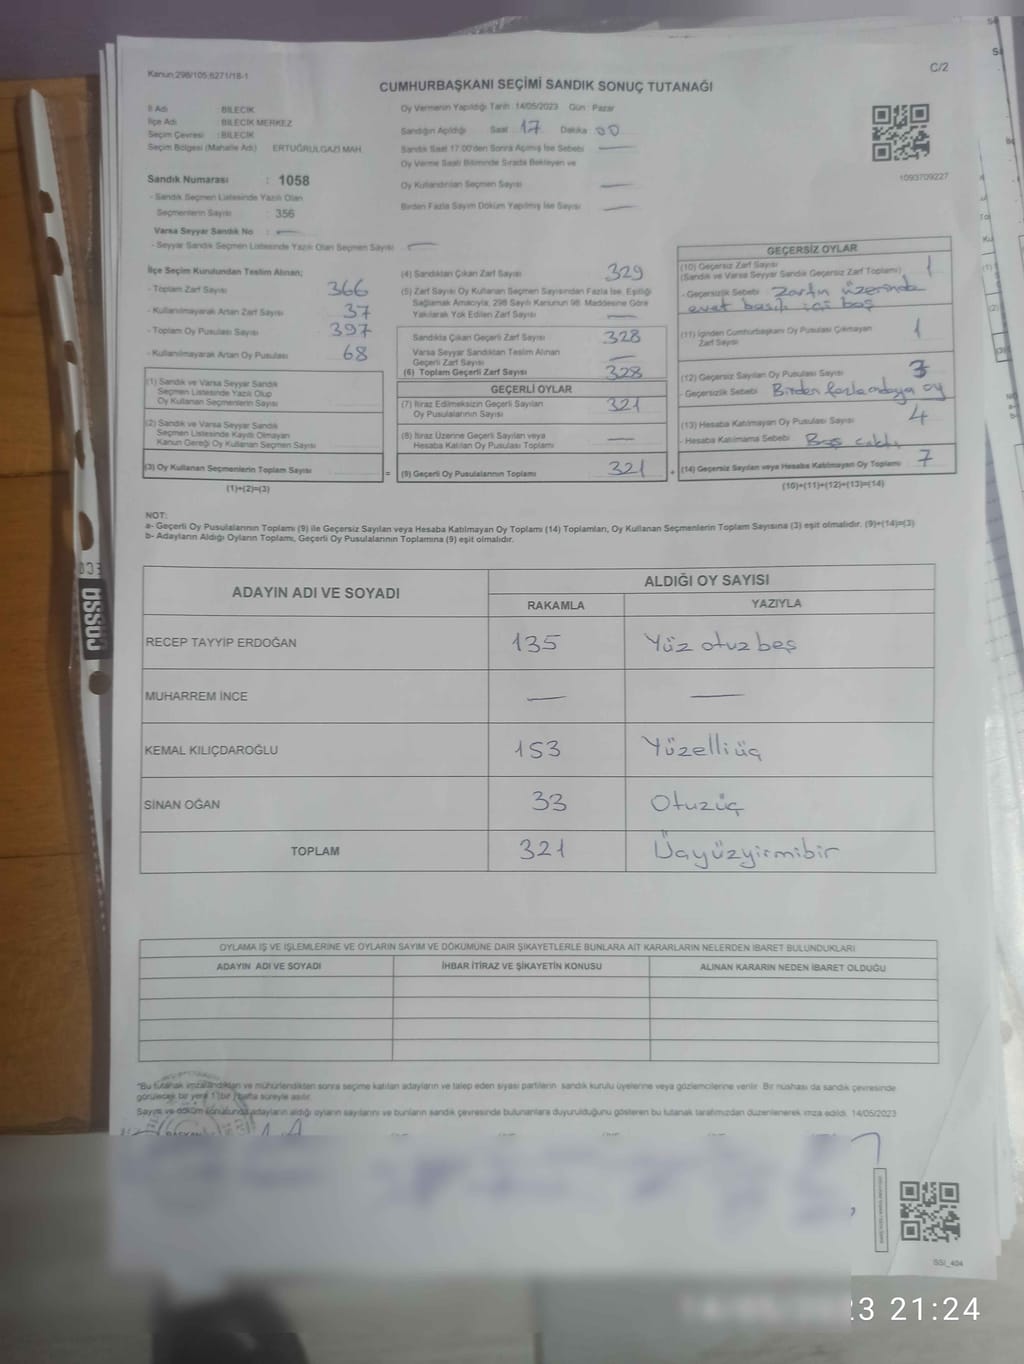 Kanun:298/105,6271/18-1
C/2
CUMHURBAŞKANI SEÇİMİ SANDIK SONUÇ TUTANAĞI
İl Adı : BİLECİK
İlçe Adı : BİLECİK MERKEZ
Seçim Çevresi : BİLECİK
Seçim Bölgesi (Mahalle Adı) ERTUĞRULGAZİ MAH.
Oy Vermenin Yapıldığı Tarih :14/05/2023 Gün : Pazar
Sandığın Açıldığı Saat :17 Dakika :00
Sandık Saat 17:00'den Sonra Açılmış İse Sebebi —
Oy Verme Saati Bitiminde Sırada Bekleyen ve
Oy Kullandırılan Seçmen Sayısı —
Birden Fazla Sayım Döküm Yapılmış İse Sayısı —
1093709227
Sandık Numarası : 1058
- Sandık Seçmen Listesinde Yazılı Olan
Seçmenlerin Sayısı : 356
Varsa Seyyar Sandık No : —
- Seyyar Sandık Seçmen Listesinde Yazılı Olan Seçmen Sayısı : —
İlçe Seçim Kurulundan Teslim Alınan;
- Toplam Zarf Sayısı 366
- Kullanılmayarak Artan Zarf Sayısı 37
- Toplam Oy Pusulası Sayısı 397
- Kullanılmayarak Artan Oy Pusulası 68
(1) Sandık ve Varsa Seyyar Sandık
Seçmen Listesinde Yazılı Olup
Oy Kullanan Seçmenlerin Sayısı
(2) Sandık ve Varsa Seyyar Sandık
Seçmen Listesinde Kayıtlı Olmayan
Kanun Gereği Oy Kullanan Seçmen Sayısı
(3) Oy Kullanan Seçmenlerin Toplam Sayısı =
(1)+(2)=(3)
(4) Sandıktan Çıkan Zarf Sayısı 329
(5) Zarf Sayısı Oy Kullanan Seçmen Sayısından Fazla İse, Eşitliği
Sağlamak Amacıyla, 298 Sayılı Kanunun 98. Maddesine Göre
Yakılarak Yok Edilen Zarf Sayısı —
Sandıkta Çıkan Geçerli Zarf Sayısı 328
Varsa Seyyar Sandıktan Teslim Alınan
Geçerli Zarf Sayısı —
(6) Toplam Geçerli Zarf Sayısı 328
GEÇERLİ OYLAR
(7) İtiraz Edilmeksizin Geçerli Sayılan
Oy Pusulalarının Sayısı 321
(8) İtiraz Üzerine Geçerli Sayılan veya
Hesaba Katılan Oy Pusulası Toplamı —
(9) Geçerli Oy Pusulalarının Toplamı 321 +
GEÇERSİZ OYLAR
(10) Geçersiz Zarf Sayısı
(Sandık ve Varsa Seyyar Sandık Geçersiz Zarf Toplamı) 1
- Geçersizlik Sebebi Zarfın üzerinde
evet basılı içi boş
(11) İçinden Cumhurbaşkanı Oy Pusulası Çıkmayan
Zarf Sayısı 1
(12) Geçersiz Sayılan Oy Pusulası Sayısı 3
- Geçersizlik Sebebi Birden fazla adaya oy
(13) Hesaba Katılmayan Oy Pusulası Sayısı 4
- Hesaba Katılmama Sebebi Boş çıktı
(14) Geçersiz Sayılan veya Hesaba Katılmayan Oy Toplamı 7
(10)+(11)+(12)+(13)=(14)
NOT:
a- Geçerli Oy Pusulalarının Toplamı (9) ile Geçersiz Sayılan veya Hesaba Katılmayan Oy Toplamı (14) Toplamları, Oy Kullanan Seçmenlerin Toplam Sayısına (3) eşit olmalıdır. (9)+(14)=(3)
b- Adayların Aldığı Oyların Toplamı, Geçerli Oy Pusulalarının Toplamına (9) eşit olmalıdır.
ADAYIN ADI VE SOYADI
ALDIĞI OY SAYISI
RAKAMLA YAZIYLA
RECEP TAYYİP ERDOĞAN 135 Yüz otuz beş
MUHARREM İNCE — —
KEMAL KILIÇDAROĞLU 153 Yüzelliüç
SİNAN OĞAN 33 Otuzüç
TOPLAM 321 Üçyüzyirmibir
OYLAMA İŞ VE İŞLEMLERİNE VE OYLARIN SAYIM VE DÖKÜMÜNE DAİR ŞİKAYETLERLE BUNLARA AİT KARARLARIN NELERDEN İBARET BULUNDUKLARI
ADAYIN ADI VE SOYADI İHBAR İTİRAZ VE ŞİKAYETİN KONUSU ALINAN KARARIN NEDEN İBARET OLDUĞU
*Bu tutanak imzalandıktan ve mühürlendikten sonra seçime katılan adayların ve talep eden siyasi partilerin sandık kurulu üyelerine veya gözlemcilerine verilir. Bir nüshası da sandık çevresinde
görülecek bir yere 1 (bir) hafta süreyle asılır.
Sayım ve döküm sonucunda adayların aldığı oyların sayılarını ve bunların sandık çevresinde bulunanlara duyurulduğunu gösteren bu tutanak tarafımızdan düzenlenerek imza edildi. 14/05/2023
BAŞKAN
SSI_404
23 21:24